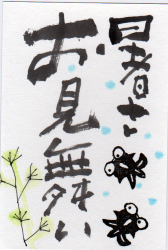 暑さ
お見舞い